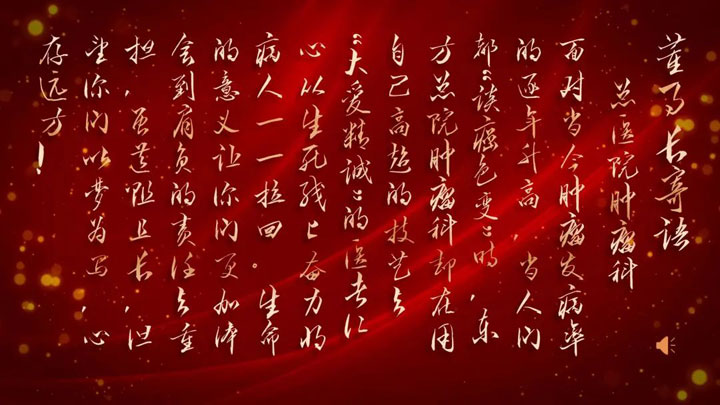 董事长寄语
总医院肿瘤科
面对当今肿瘤发病率
的逐年升高,当人们
都“谈癌色变”时,东
方总院肿瘤科却在用
自己高超的技艺与
“大爱精诚”的医者仁
心从生死线上奋力将
病人一一拉回。生命
的意义让你们更加体
会到肩负的责任与重
担,虽道阻且长,但
望你们以梦为马,心
存远方!